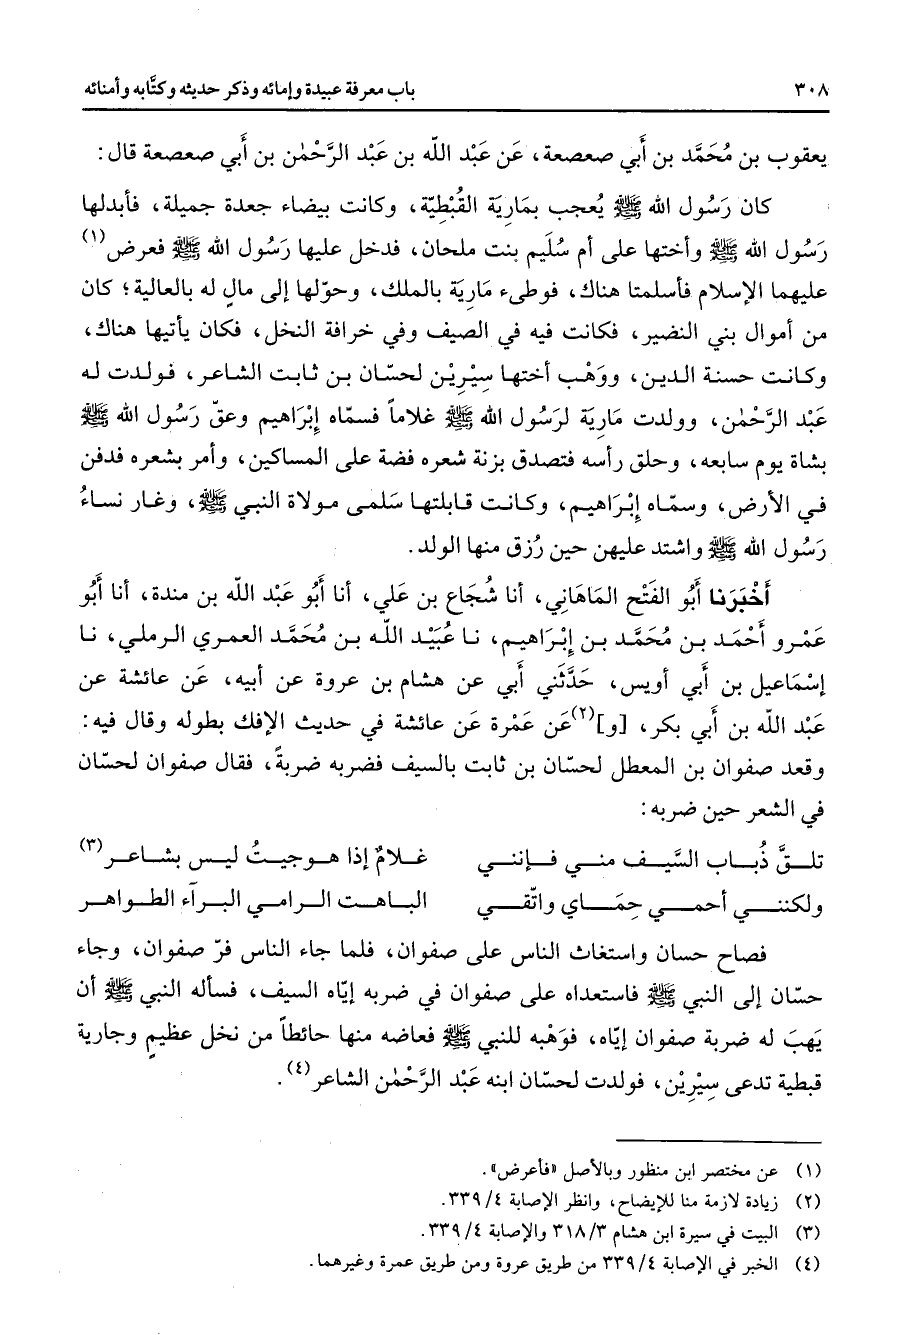 ٣٠٨ باب معرفة عبيدة وإمائه وذكر حديثه وكتَّابه وأمنائه
يعقوب بن مُحَمَّد بن أَبي صعصعة، عَن عَبْد اللّه بن عَبْد الرَّحْمٰن بن أَبي صعصعة قال:
كان رَسُول الله ﷺ يُعجب بمَارِيَة القُبْطِيّة، وكانت بيضاء جعدة جميلة، فأبدلها
رَسُول الله ﷺ وأختها على أم سُلَيم بنت ملحان، فدخل عليها رَسُول الله ﷺ فعرض(١)
عليهما الإسلام فأسلمتا هناك، فوطىء مَارِيَة بالملك، وحوّلها إلى مالٍ له بالعالية؛ كان
من أموال بني النضير، فكانت فيه في الصيف وفي خرافة النخل، فكان يأتيها هناك،
وكانت حسنة الدين، ووَهْب أختها سِيْرِيْن لحسّان بن ثابت الشاعر، فولدت له
عَبْد الرَّحْمٰن، وولدت مَارِيَة لرَسُول الله ﷺ غلاماً فسمّاه إِبْرَاهيم وعقّ رَسُول الله ﷺ
بشاة يوم سابعه، وحلق رأسه فتصدق بزنة شعره فضة على المساكين، وأمر بشعره فدفن
في الأرض، وسمّاه إِبْرَاهيم، وكانت قابلتها سَلمى مولاة النبي ﷺ، وغار نساءُ
رَسُول الله ﷺ واشتد عليهن حين رُزق منها الولد.
أَخْبَرَنا أَبُو الفَتْح المَاهَاني، أنا شُجَاع بن عَلي، أنا أَبُو عَبْد اللّه بن مندة، أنا أَبُو
عَمْرو أَحْمَد بن مُحَمَّد بن إِبْرَاهيم، نا عُبَيْد اللّه بن مُحَمَّد العمري الرملي، نا
إسْمَاعيل بن أَبي أويس، حَدَّثَني أَبي عن هشام بن عروة عن أبيه، عَن عائشة عن
عَبْد اللّه بن أَبي بكر، [و](٢)عَن عَمْرة عَن عائشة في حديث الإفك بطوله وقال فيه:
وقعد صفوان بن المعطل لحسّان بن ثابت بالسيف فضربه ضربةً، فقال صفوان لحسّان
في الشعر حين ضربه:
تلقَّ ذُباب السَّيف مني فإنني غلامٌ إذا هوجيتُ ليس بشاعر(٣)
ولكنني أحمي حِمَاي واتّقي الباهت الرامي البرآء الطواهر
فصاح حسان واستغاث الناس على صفوان، فلما جاء الناس فرّ صفوان، وجاء
حسّان إلى النبي ﷺ فاستعداه على صفوان في ضربه إيّاه السيف، فسأله النبي ﷺ أن
يَهبَ له ضربة صفوان إيّاه، فوَهْبه للنبي ﷺ فعاضه منها حائطاً من نخل عظيمٍ وجارية
قبطية تدعى سِيْرِيْن، فولدت لحسّان ابنه عَبْد الرَّحْمٰن الشاعر(٤).
(١) عن مختصر ابن منظور وبالأصل «فأعرض».
(٢) زيادة لازمة منا للإيضاح، وانظر الإصابة ٤/ ٣٣٩.
(٣) البيت في سيرة ابن هشام ٣/ ٣١٨ والإصابة ٤/ ٣٣٩.
(٤) الخبر في الإصابة ٤/ ٣٣٩ من طريق عروة ومن طريق عمرة وغيرهما.